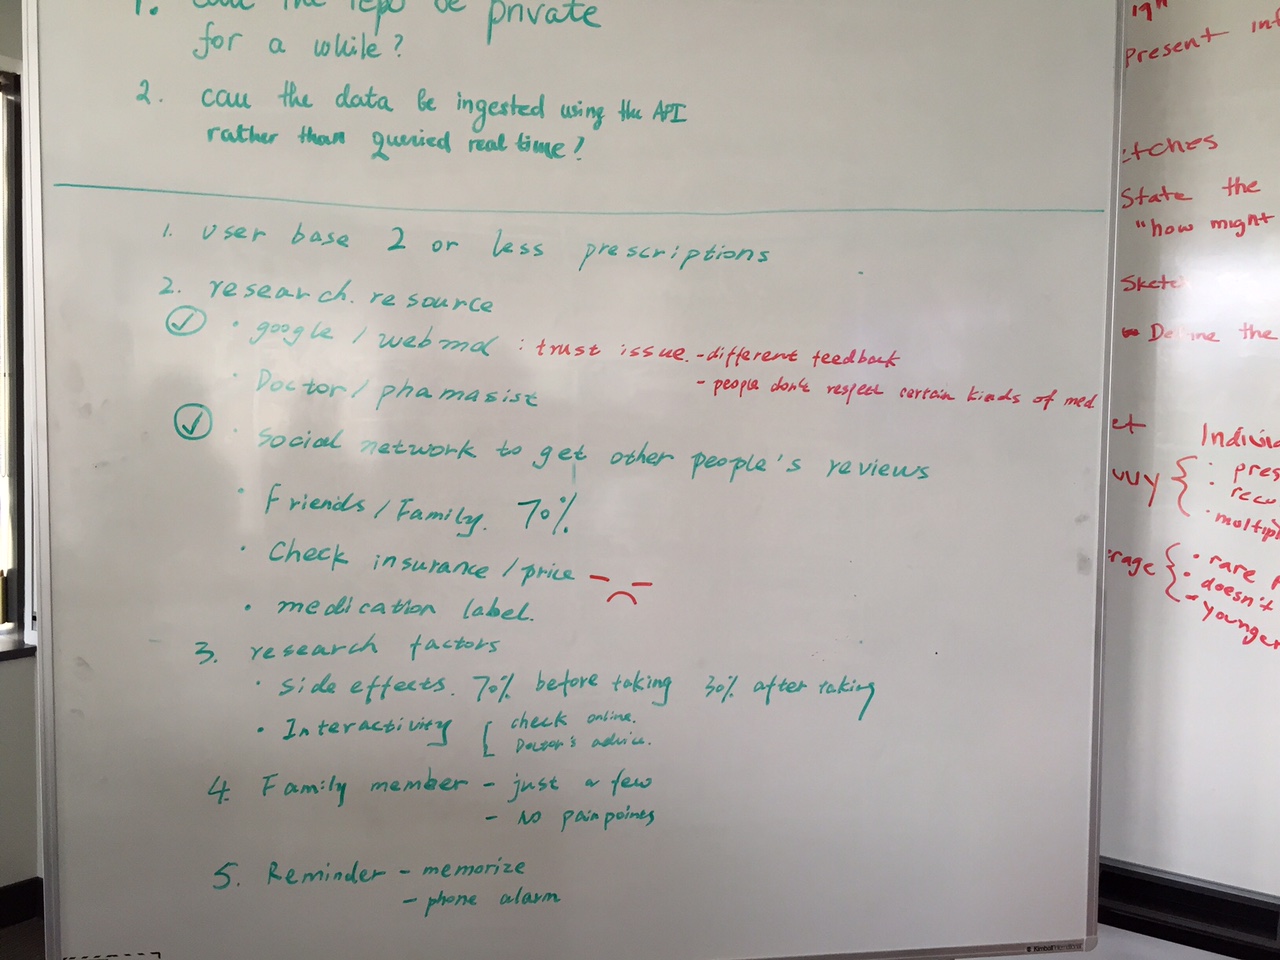 1. the repo be private
for a while?
2. can the data be ingested using the API
rather than queried real time?
1. user base 2 or less prescriptions
2. research. resource
· google / webmd : trust issue. - different feedback
- people don't respect certain kinds of med
· Doctor / phamasist
· social network to get other people's reviews
· Friends / Family. 70%
· Check insurance / price
· medication label.
3. research factors
· side effects. 70% before taking 30% after taking
· Interactivity [ check online.
Doctor's advice.
4. Family member - just a few
- No pain points
5. Reminder - memorize
- phone alarm
Kimball International
present
State the
"how might
Define the
Individ
rare
doesn't
younger